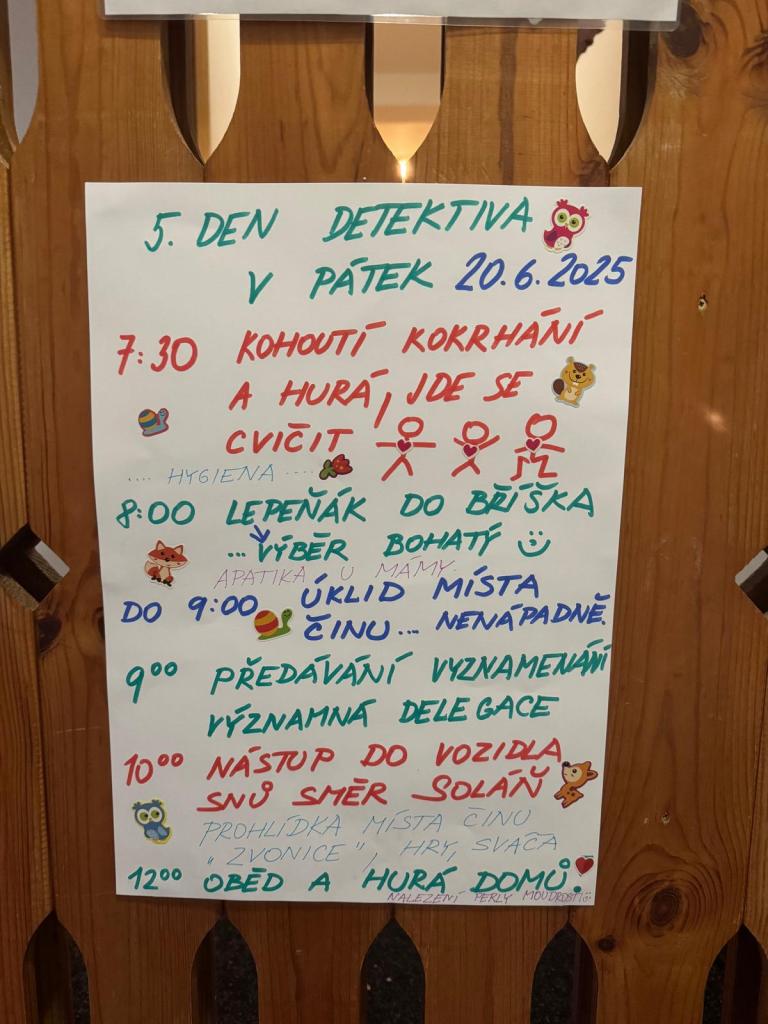 5. DEN DETEKTIVA
V PÁTEK 20.6.2025
7:30 KOHOUTÍ KOKRHÁNÍ
A HURÁ, JDE SE
CVIČIT
.... HYGIENA ....
8:00 LEPEŇÁK DO BŘÍŠKA
... VÝBĚR BOHATÝ
APATIKA U MÁMY.
DO 9:00 ÚKLID MÍSTA
ČINU... NENÁPADNĚ.
9⁰⁰ PŘEDÁVÁNÍ VYZNAMENÁNÍ
VÝZNAMNÁ DELEGACE
10⁰⁰ NÁSTUP DO VOZIDLA
SNŮ SMĚR SOLÁŇ
PROHLÍDKA MÍSTA ČINU
"ZVONICE", HRY, SVAČA
12⁰⁰ OBĚD A HURÁ DOMŮ!
NALEZENÍ PERLY MOUDROSTI